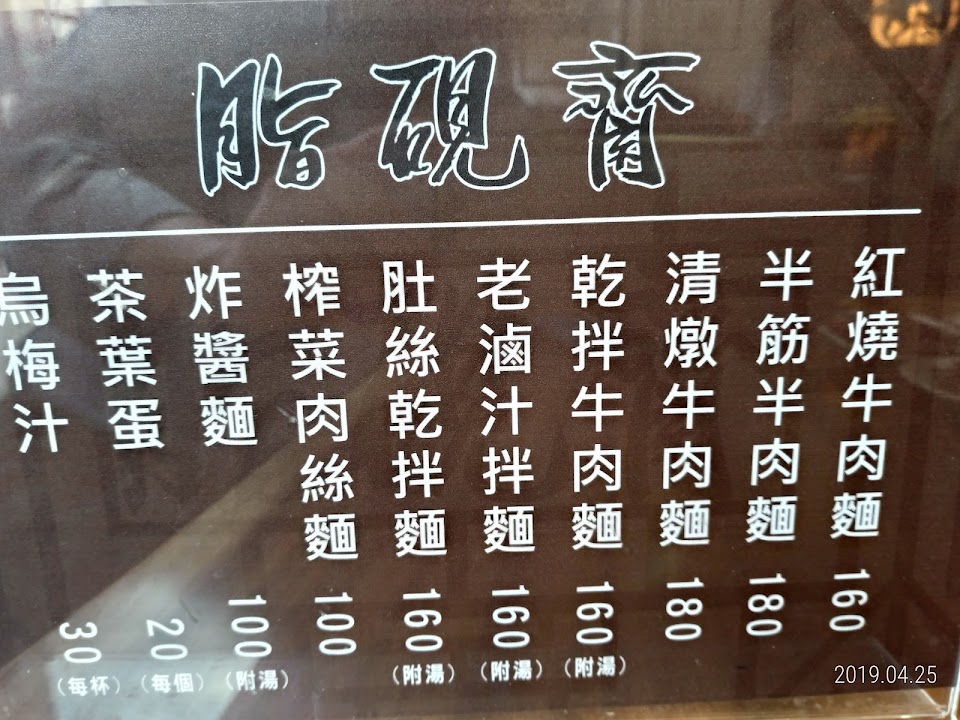 脂硯齋
紅燒牛肉麵 160
半筋半肉麵 180
清燉牛肉麵 180
乾拌牛肉麵 160 (附湯)
老滷汁拌麵 160 (附湯)
肚絲乾拌麵 160 (附湯)
榨菜肉絲麵 100
炸醬麵 100 (附湯)
茶葉蛋 20 (每個)
烏梅汁 30 (每杯)
2019.04.25